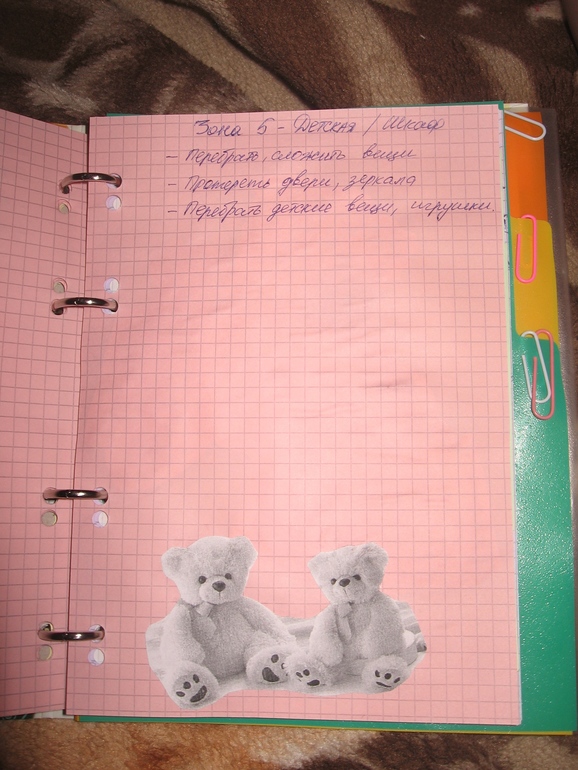 Зона 5 - Детская / Шкаф
- Перебрать, сложить вещи
- Протереть двери, зеркала
- Перебрать детские вещи, игрушки.